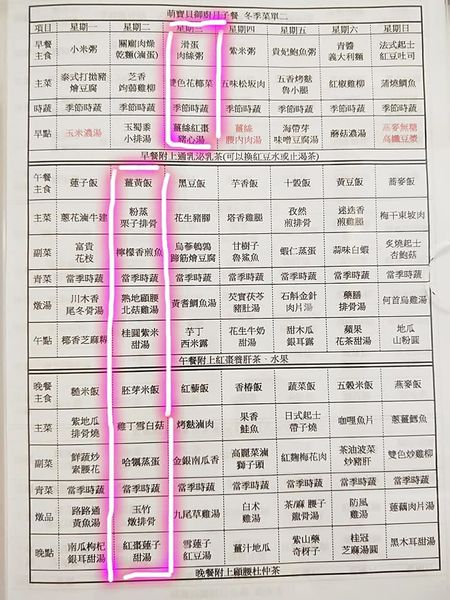 萌寶貝御廚月子餐 冬季菜單二
項目 星期一 星期二 星期三 星期四 星期五 星期六 星期日
早餐 小米粥 關廟肉燥 滑蛋 紫米粥 貴妃鮑魚粥 青醬 法式起士
主食 乾麵(滷蛋) 肉絲粥 義大利麵 紅豆吐司
主菜 泰式打拋豬 芝香 雙色花椰菜 五味松坂肉 五香烤麩 紅椒雞柳 蒲燒鯛魚
燴豆腐 蒟蒻雞柳 魯小腿
時蔬 季節時蔬 季節時蔬 季節時蔬 季節時蔬 季節時蔬 季節時蔬 季節時蔬
早點 玉米濃湯 玉蜀黍 薑絲紅棗 薑絲 海帶芽 蘑菇濃湯 燕麥無糖
小排湯 豬心湯 腰內肉湯 味噌豆腐湯 高纖豆漿
早餐附上通乳泌乳茶(可以換紅豆水或止渴茶)
午餐 蓮子飯 薑黃飯 黑豆飯 芋香飯 十穀飯 黃豆飯 蕎麥飯
主食
主菜 蔥花滷牛腱 粉蒸 花生豬腳 塔香雞腿 孜然 迷迭香 梅干東坡肉
栗子排骨 煎排骨 煎雞腿
副菜 富貴 檸檬香煎魚 烏蔘鵪鶉 甘樹子 蝦仁蒸蛋 蒜味白蝦 炙燒起士
花枝 蹄筋燴豆腐 魯鯊魚 杏鮑菇
青菜 當季時蔬 當季時蔬 當季時蔬 當季時蔬 當季時蔬 當季時蔬 當季時蔬
燉湯 川木香 熟地顧腰 黃耆鯛魚湯 芡實茯苓 石斛金針 藥膳 何首烏雞湯
尾冬骨湯 北菇雞湯 豬肚湯 肉片湯 排骨湯
午點 椰香芝麻糊 桂圓紫米 芋丁 花生牛奶 甜木瓜 蘋果 地瓜
甜湯 西米露 甜湯 銀耳露 花茶甜湯 山粉圓
午餐附上紅棗養肝茶、水果
晚餐 糙米飯 胚芽米飯 紅藜飯 香椿飯 蔬菜飯 五穀米飯 燕麥飯
主食
主菜 紫地瓜 雞丁雪白菇 烤麩滷肉 果香 日式起士 咖哩魚片 蔥薑鱈魚
排骨燒 鮭魚 帶子燒
副菜 鮮蔬炒 哈獨蒸蛋 金銀南瓜香 高麗菜滷 紅麴梅花肉 茶油波菜 雙色炒雞柳
素腰花 獅子頭 炒豬肝
青菜 當季時蔬 當季時蔬 當季時蔬 當季時蔬 當季時蔬 當季時蔬 當季時蔬
燉品 路路通 玉竹 九尾草雞湯 白朮 茶/麻 腰子 防風 蓮藕肉片湯
黃魚湯 燉排骨 雞湯 龍骨湯 雞湯
晚點 南瓜枸杞 紅棗蓮子 雪蓮子 薑汁地瓜 紫山藥 桂冠 黑木耳甜湯
銀耳甜湯 甜湯 紅豆湯 奇枒子 芝麻湯圓
晚餐附上顧腰杜仲茶